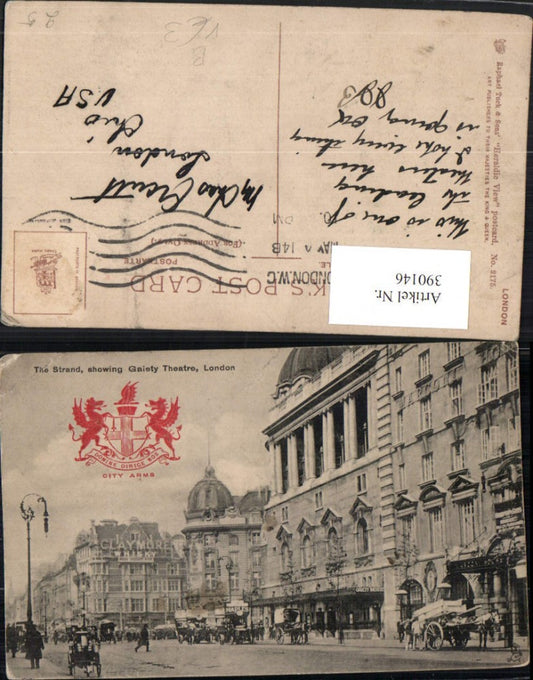 25
B
VK3
Raphael Tuck & Sons' "Heraldic View" postcard, No. 2175.
ART PUBLISHERS TO THEIR MAJESTIES THE KING & QUEEN.
LONDON
This is one of
the leading
theatres here
I hope every thing
is going OK
London
Ohio
USA
K'S POST CARD
POSTKARTE
(FOR ADDRESS ONLY.)
LONDON.W.C
MAY 14B
PM
Artikel Nr.
390146
The Strand, showing Gaiety Theatre, London
DOMINE DIRIGE NOS
CITY ARMS
WHISKY